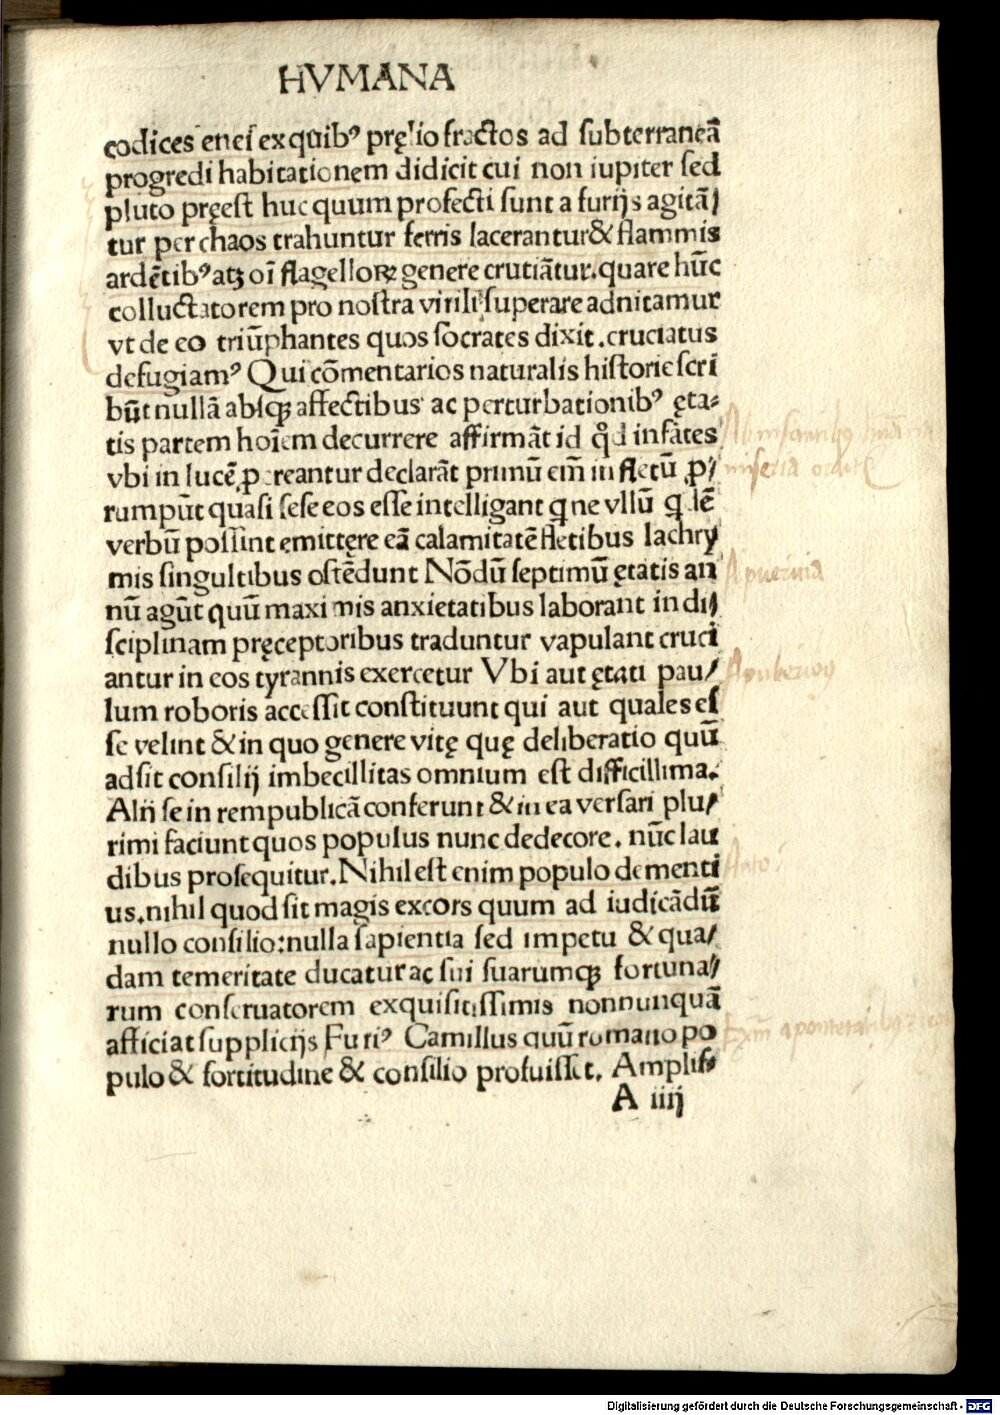 HVMANA
codices enei ex quibꝰ pręlio fractos ad subterraneã
progredi habitationem didicit cui non iupiter sed
pluto pręest huc quum profecti sunt a furijs agitã/
tur per chaos trahuntur ferris lacerantur & flammis
ardẽtibꝰ atqꝫ oĩ flagelloꝝ genere crutiãtur. quare hũc
colluctatorem pro nostra virili superare adnitamur
vt de eo triũphantes quos socrates dixit. cruciatus
defugiamꝰ Qui cõmentarios naturalis historie scri
bũt nullã absqꝫ affectibus ac perturbationibꝰ ęta-
tis partem hoĩem decurrere affirmãt id qđ infãtes
vbi in lucẽ ꝓcreantur declarãt primũ eim̃ in fletũ ꝓ/
rumpũt quasi sese eos esse intelligant q ne vllũ q
verbũ possint emittęre eã calamitatẽ fletibus lachry
mis singultibus ostẽdunt Nõdũ septimũ ętatis an
nũ agũt quũ maximis anxietatibus laborant in di/
sciplinam pręceptoribus traduntur vapulant cruci
antur in eos tyrannis exercetur Vbi aut ętati pau/
lum roboris accessit constituunt qui aut quales es
se velint & in quo genere vitę quę deliberatio quũ
adsit consilij imbecillitas omnium est difficillima.
Alij se in rempublicã conferunt & in ea versari plu/
rimi faciunt quos populus nunc dedecore. nũc lau
dibus prosequitur. Nihil est enim populo dementi
us. nihil quod sit magis excors quum ad iudicãdũ
nullo consilio: nulla sapientia sed impetu & qua/
dam temeritate ducatur ac sui suarumqꝫ fortuna/
rum conseruatorem exquisitissimis nonnunquã
afficiat supplicijs Furiꝰ Camillus quũ romano po
pulo & fortitudine & consilio profuisset. Amplis
A iiij
miseria
A pueritia
Digitalisierung gefördert durch die Deutsche Forschungsgemeinschaft - DFG